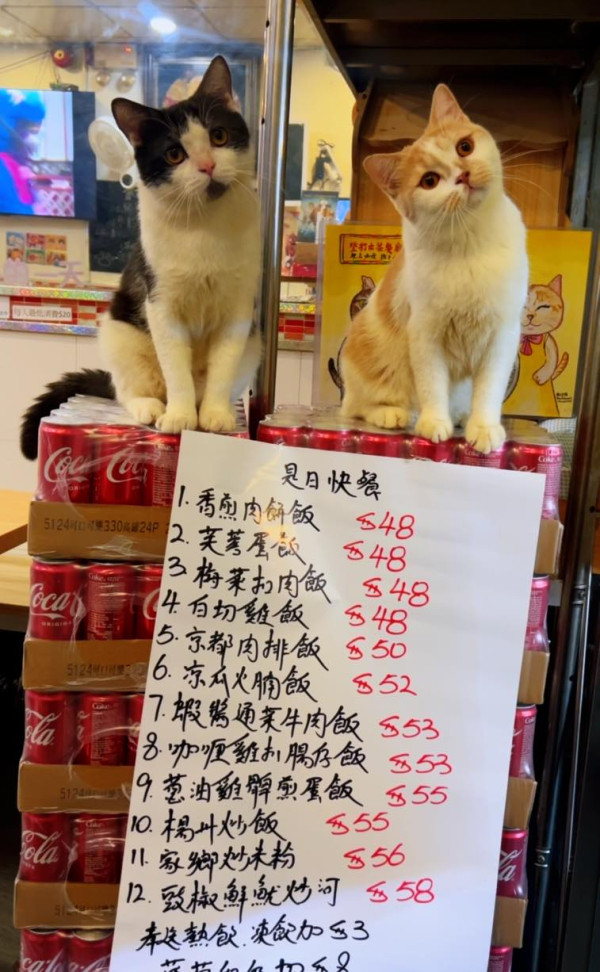 是日快餐
1. 香煎肉餅飯 $48
2. 芙蓉蛋飯 $48
3. 梅菜扣肉飯 $48
4. 白切雞飯 $48
5. 京都肉排飯 $50
6. 涼瓜火腩飯 $52
7. 蝦醬通菜牛肉飯 $53
8. 咖喱雞扒腸仔飯 $53
9. 蔥油雞髀煎蛋飯 $55
10. 楊州炒飯 $55
11. 家鄉炒米粉 $56
12. 豉椒鮮魷炒河 $58
奉送熱飲．凍飲加 $3
Coca
Cola
5124可口可樂330高罐24P